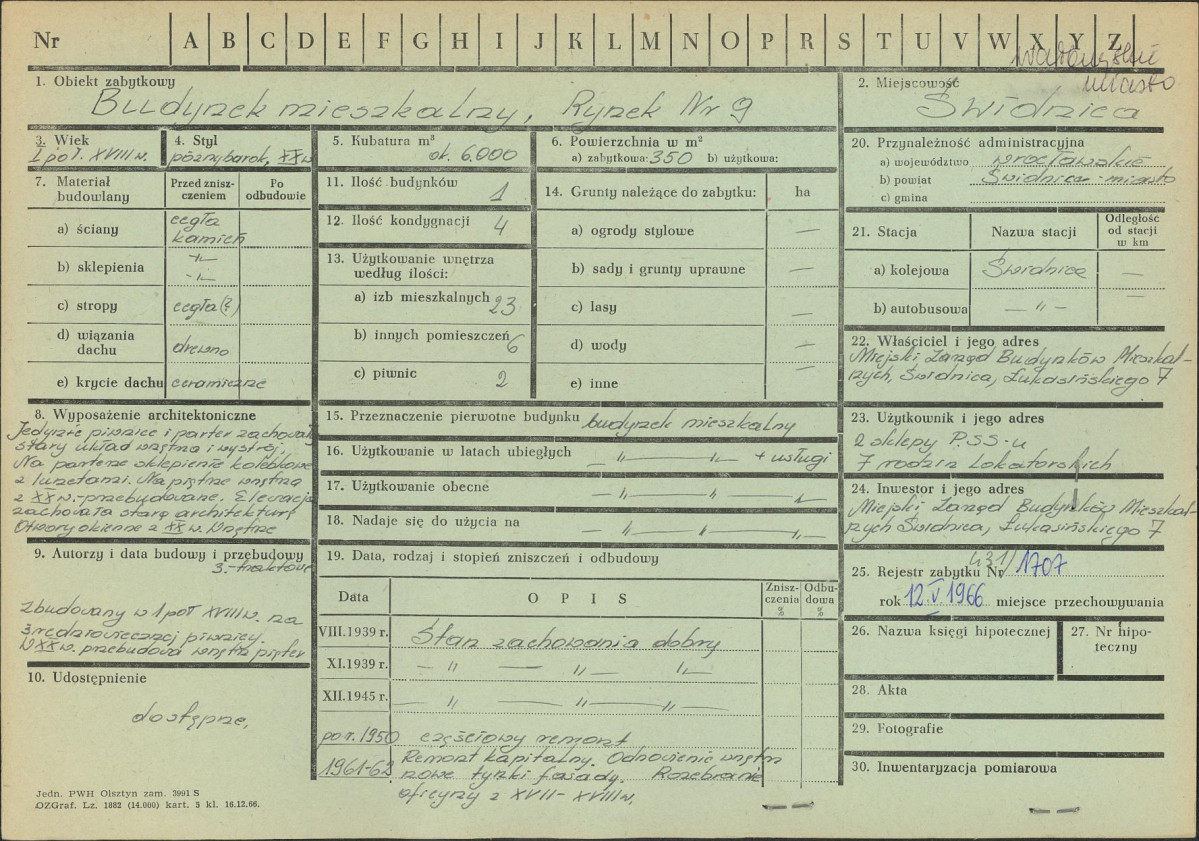 Nr A B C D E F G H I J K L M N O P R S T U V W X Y Z
miasto
1. Obiekt zabytkowy
Budynek mieszkalny, Rynek Nr 9
2. Miejscowość
Świdnica
3. Wiek
1 poł. XVIII w.
4. Styl
późny barok, XX w
5. Kubatura m³
ok. 6.000
6. Powierzchnia w m²
a) zabytkowa: 350 b) użytkowa:
20. Przynależność administracyjna
a) województwo wrocławskie
b) powiat Świdnica-miasto
c) gmina
7. Materiał budowlany
Przed zniszczeniem
Po odbudowie
a) ściany cegła
kamień
b) sklepienia -"-
-"-
c) stropy cegła (?)
d) wiązania
dachu drewno
e) krycie dachu ceramiczne
11. Ilość budynków 1
12. Ilość kondygnacji 4
13. Użytkowanie wnętrza
według ilości:
a) izb mieszkalnych 23
b) innych pomieszczeń 6
c) piwnic 2
14. Grunty należące do zabytku: ha
a) ogrody stylowe —
b) sady i grunty uprawne —
c) lasy —
d) wody —
e) inne —
21. Stacja Nazwa stacji Odległość
od stacji
w km
a) kolejowa Świdnica —
b) autobusowa -"- —
22. Właściciel i jego adres
Miejski Zarząd Budynków Mieszkal-
nych, Świdnica, Łukasińskiego 7
8. Wyposażenie architektoniczne
Jedynie piwnice i parter zachowały
stary układ wnętrza i wystrój.
Na parterze sklepienie kolebkowe
z lunetami. Na piętrze wnętrza
z XX w.-przebudowane. Elewacja
zachowała starą architekturę
Otwory okienne z XX w. Wnętrze
3.-traktowe
15. Przeznaczenie pierwotne budynku budynek mieszkalny
16. Użytkowanie w latach ubiegłych — " — " — + usługi
17. Użytkowanie obecne — " — " — "
18. Nadaje się do użycia na — " — " — "
23. Użytkownik i jego adres
2 sklepy P.S.S.-u
7 rodzin lokatorskich
24. Inwestor i jego adres
Miejski Zarząd Budynków Mieszkal-
nych Świdnica, Łukasińskiego 7
9. Autorzy i data budowy i przebudowy
zbudowany w 1 poł XVIII w. na
średniowiecznej piwnicy.
W XX w. przebudowa wnętrz pięter
19. Data, rodzaj i stopień zniszczeń i odbudowy
Data O P I S Znisz-
czenia
% Odbu-
dowa
%
VIII.1939 r. Stan zachowania dobry
XI.1939 r. — " — " — " —
XII.1945 r. — " — " — " —
po r. 1950 częściowy remont
1961-62 Remont kapitalny. Odnowienie wnętrz
nowe tynki fasady. Rozebranie
oficyny z XVII-XVIII w.
25. Rejestr zabytku Nr 431/1707
rok 12.V.1966 miejsce przechowywania
26. Nazwa księgi hipotecznej
27. Nr hipo-
teczny
28. Akta
29. Fotografie
30. Inwentaryzacja pomiarowa
10. Udostępnienie
dostępne,
Jedn. PWH Olsztyn zam. 3991 S
OZGraf. Lz. 1882 (14.000) kart. 5 kl. 16.12.66.